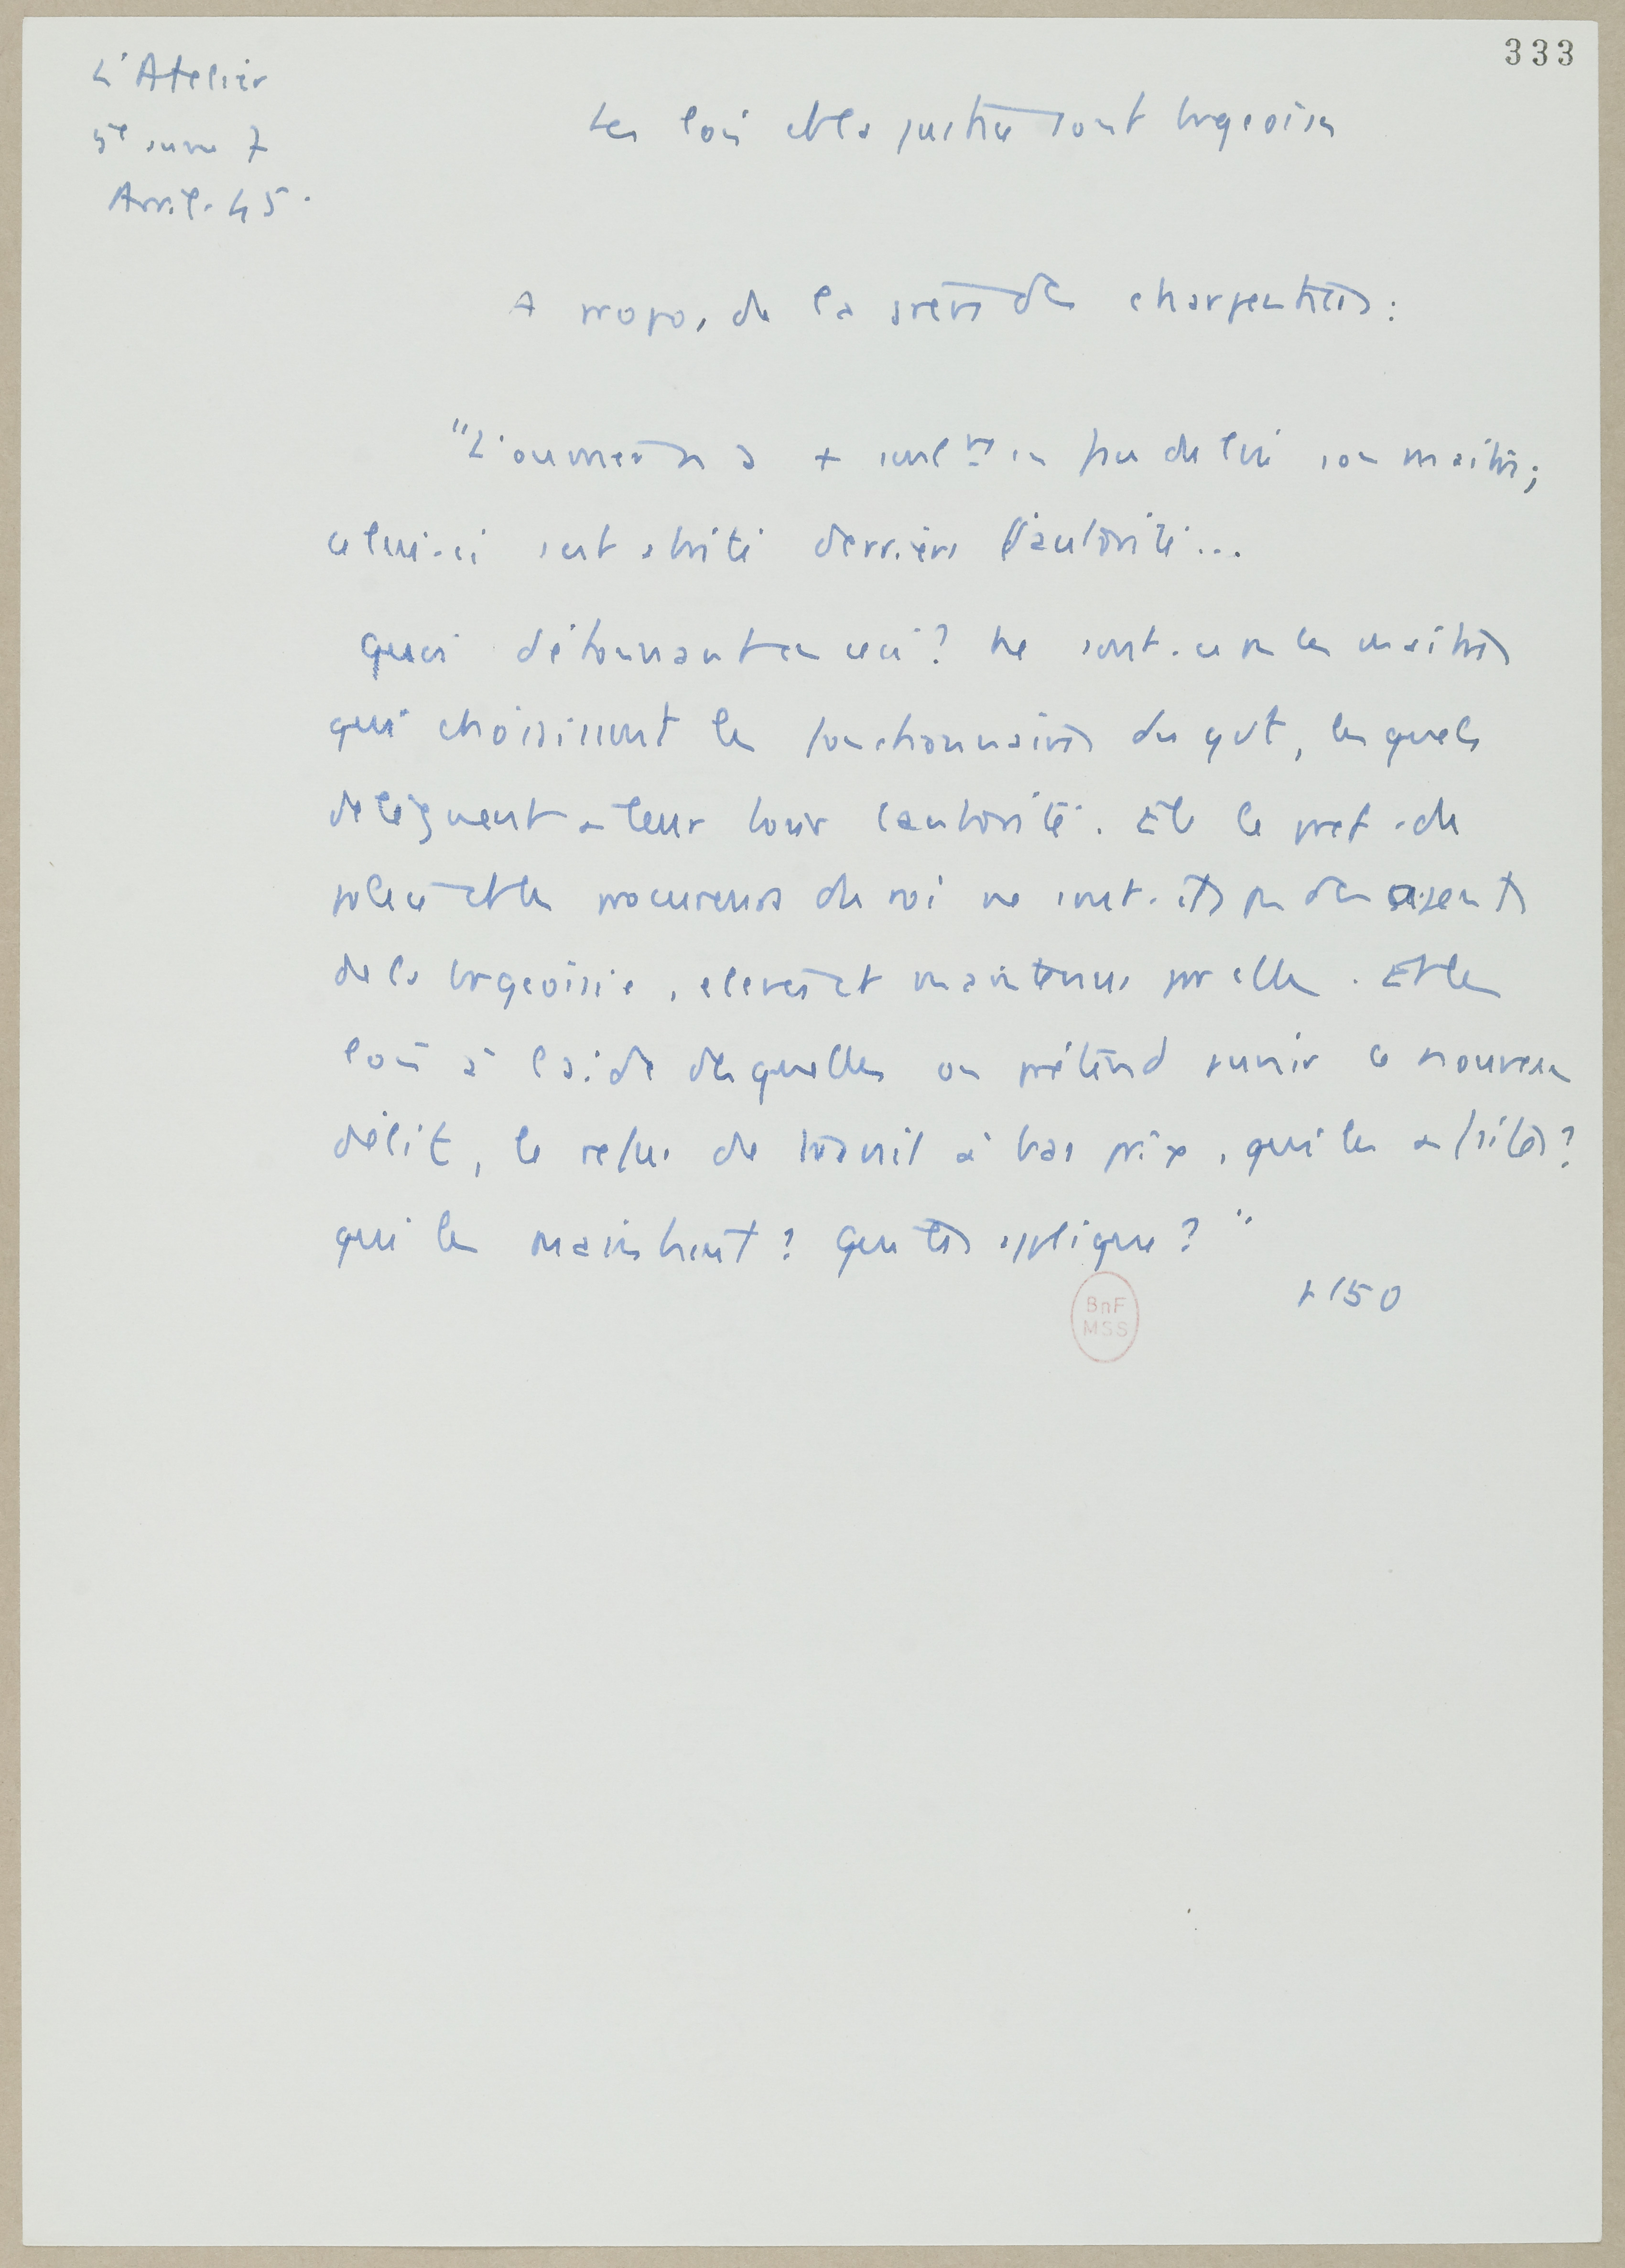 333
L'Atelier
5e année 7
Avril. 45.
Les lois et la justice sont brgeoises
A propos de la grève des charpentiers :
"L'ouvrier n'a + seulmt en face de lui son maître ;
celui-ci s'est abrité derrière l'autorité...
Quoi d'étonnant en ceci ? Ne sont-ce pas les maîtres
qui choisissent les fonctionnaires du gvt, lesquels
délèguent à leur tour l'autorité. Et le préfet de
police et les procureurs du roi ne sont-ils pas des agents
de la brgeoisie, élevés et maintenus par elle. Et les
lois à l'aide desquelles on prétend punir ce nouveau
délit, le refus de travail à bas prix, qui les a faites ?
qui les maintient ? Qui les applique ? "
p 150
BnF
MSS